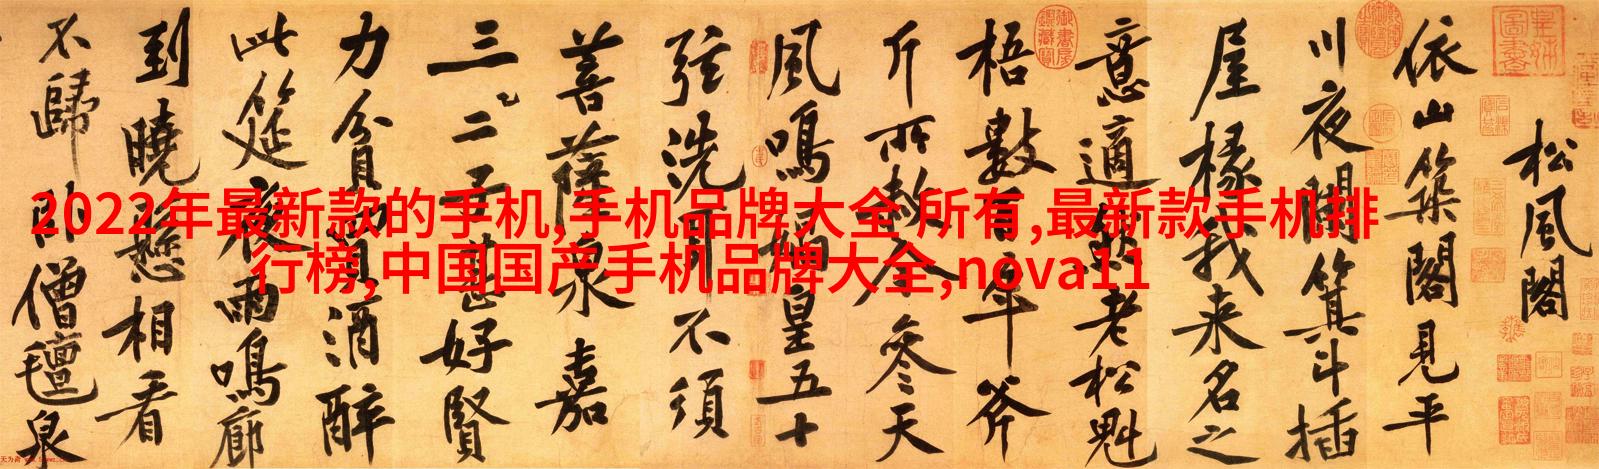 2022年最新款的手机,手机品牌大全 所有,最新款手机排
行榜,中国国产手机品牌大全,nova11
松風閣
依山築閣見平
川夜闌箕斗插
屋椽我来名之
意適然老松魁
梧數百年斧
斤所赦今参天
風鳴媧皇五十
弦洗耳不須
菩薩泉嘉
三二子甚好賢
力貧買酒醉
此筵夜雨鳴廊
到曉懸相看
不歸卧僧氊泉